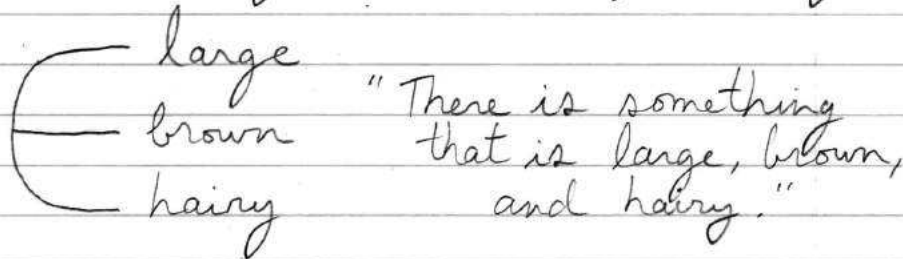 large
brown
hairy
"There is something
that is large, brown,
and hairy."